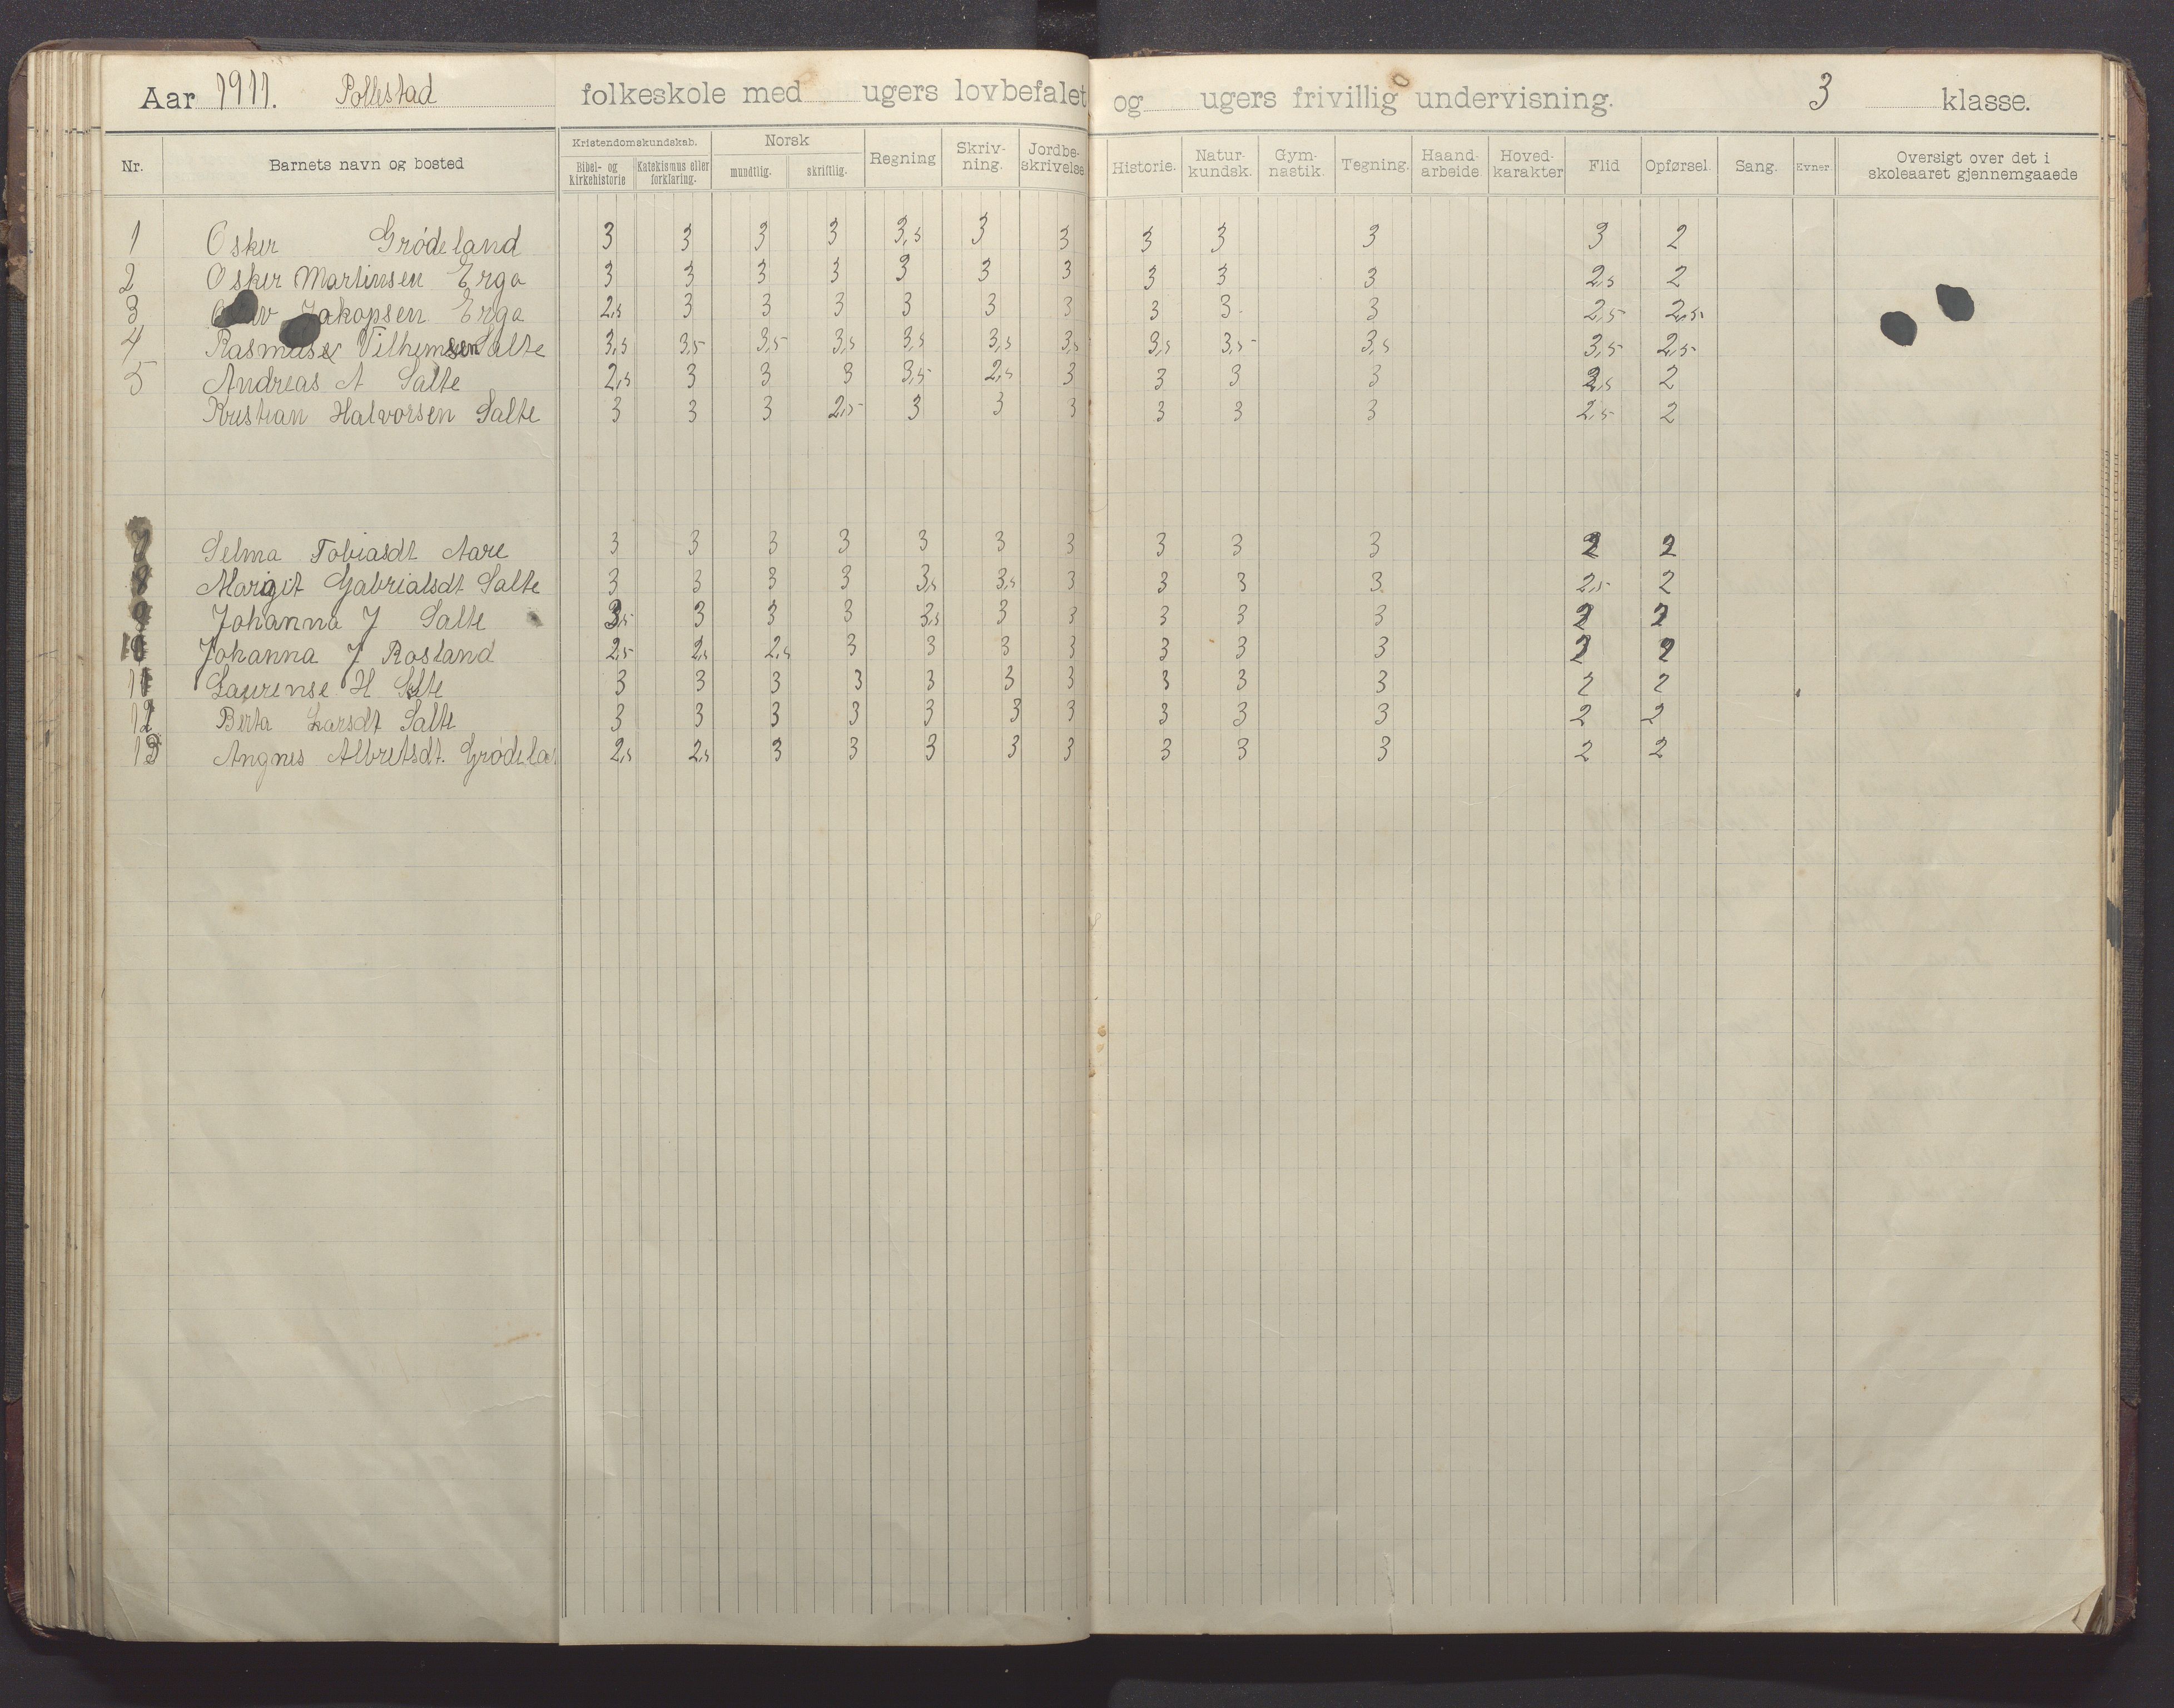 Aar 1911. Pollestad folkeskole med ugers lovbefalet og ugers frivillig undervisning. 3 klasse.
Nr. Barnets navn og bosted Kristendomskundskab. Bibel- og kirkehistorie Katekismus eller forklaring. Norsk mundtlig. skriftlig. Regning Skriv-ning. Jordbe-skrivelse Historie. Natur-kundsk. Gym-nastik. Tegning. Haand-arbeide. Hoved-karakter Flid Opførsel. Sang. Evner. Oversigt over det i skoleaaret gjennemgaaede
1 Osker Grødeland 3 3 3 3 3,5 3 3 3 3 3 3 2
2 Osker Martinsen Erga 3 3 3 3 3 3 3 3 3 3 2,5 2
3 Jakopsen Erga 2,5 3 3 3 3 3 3 3 3 3 2,5 2,5
4 Rasmus Vilhemsen Salte 3,5 3,5 3,5 3,5 3,5 3,5 3,5 3,5 3,5 3,5 3,5 2,5
5 Andreas A Salte 2,5 3 3 3 3,5 2,5 3 3 3 3 2,5 2
Kristian Halvorsen Salte 3 3 3 2,5 3 3 3 3 3 3 2,5 2
7 Selma Tobiasdt Aare 3 3 3 3 3 3 3 3 3 3 2 2
8 Margit Gabrialsdt Salte 3 3 3 3 3,5 3,5 3 3 3 3 2,5 2
9 Johanna J Salte 3,5 3 3 3 3,5 3 3 3 3 3 2 2
10 Johanna J Rosland 2,5 2,5 2,5 3 3 3 3 3 3 3 2 2
11 Laurense H Salte 3 3 3 3 3 3 3 3 3 3 2 2
12 Berta Larsdt Salte 3 3 3 3 3 3 3 3 3 3 2 2
13 Angnes Albretsdt. Grødela 2,5 2,5 3 3 3 3 3 3 3 3 2 2